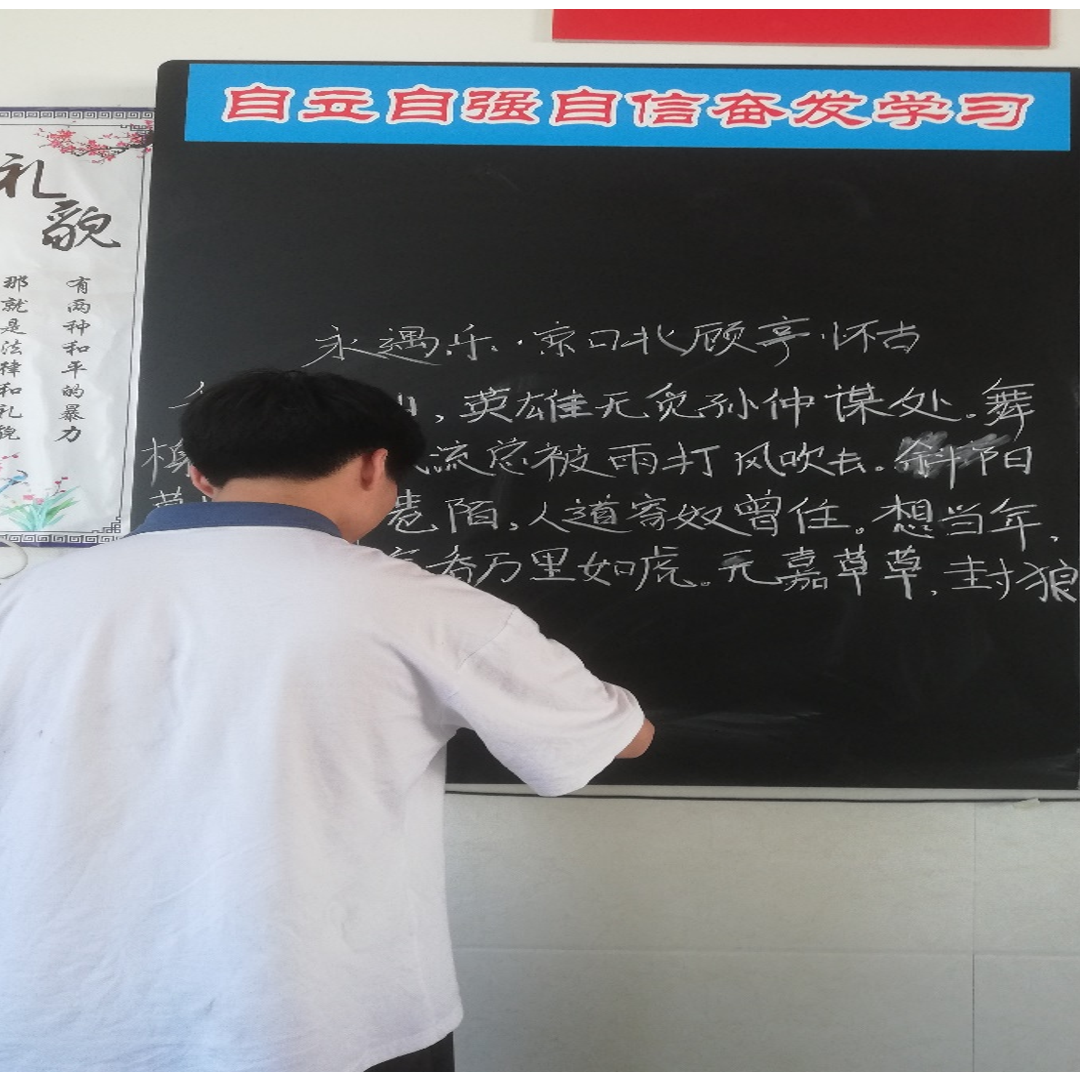 自立自强自信奋发学习
礼
貌
有两种和平的暴力
那就是法律和礼貌
永遇乐·京口北顾亭怀古
山，英雄无觅孙仲谋处。舞
榭 风流总被雨打风吹去。斜阳
草 巷陌，人道寄奴曾住。想当年，
气吞万里如虎。元嘉草草，封狼